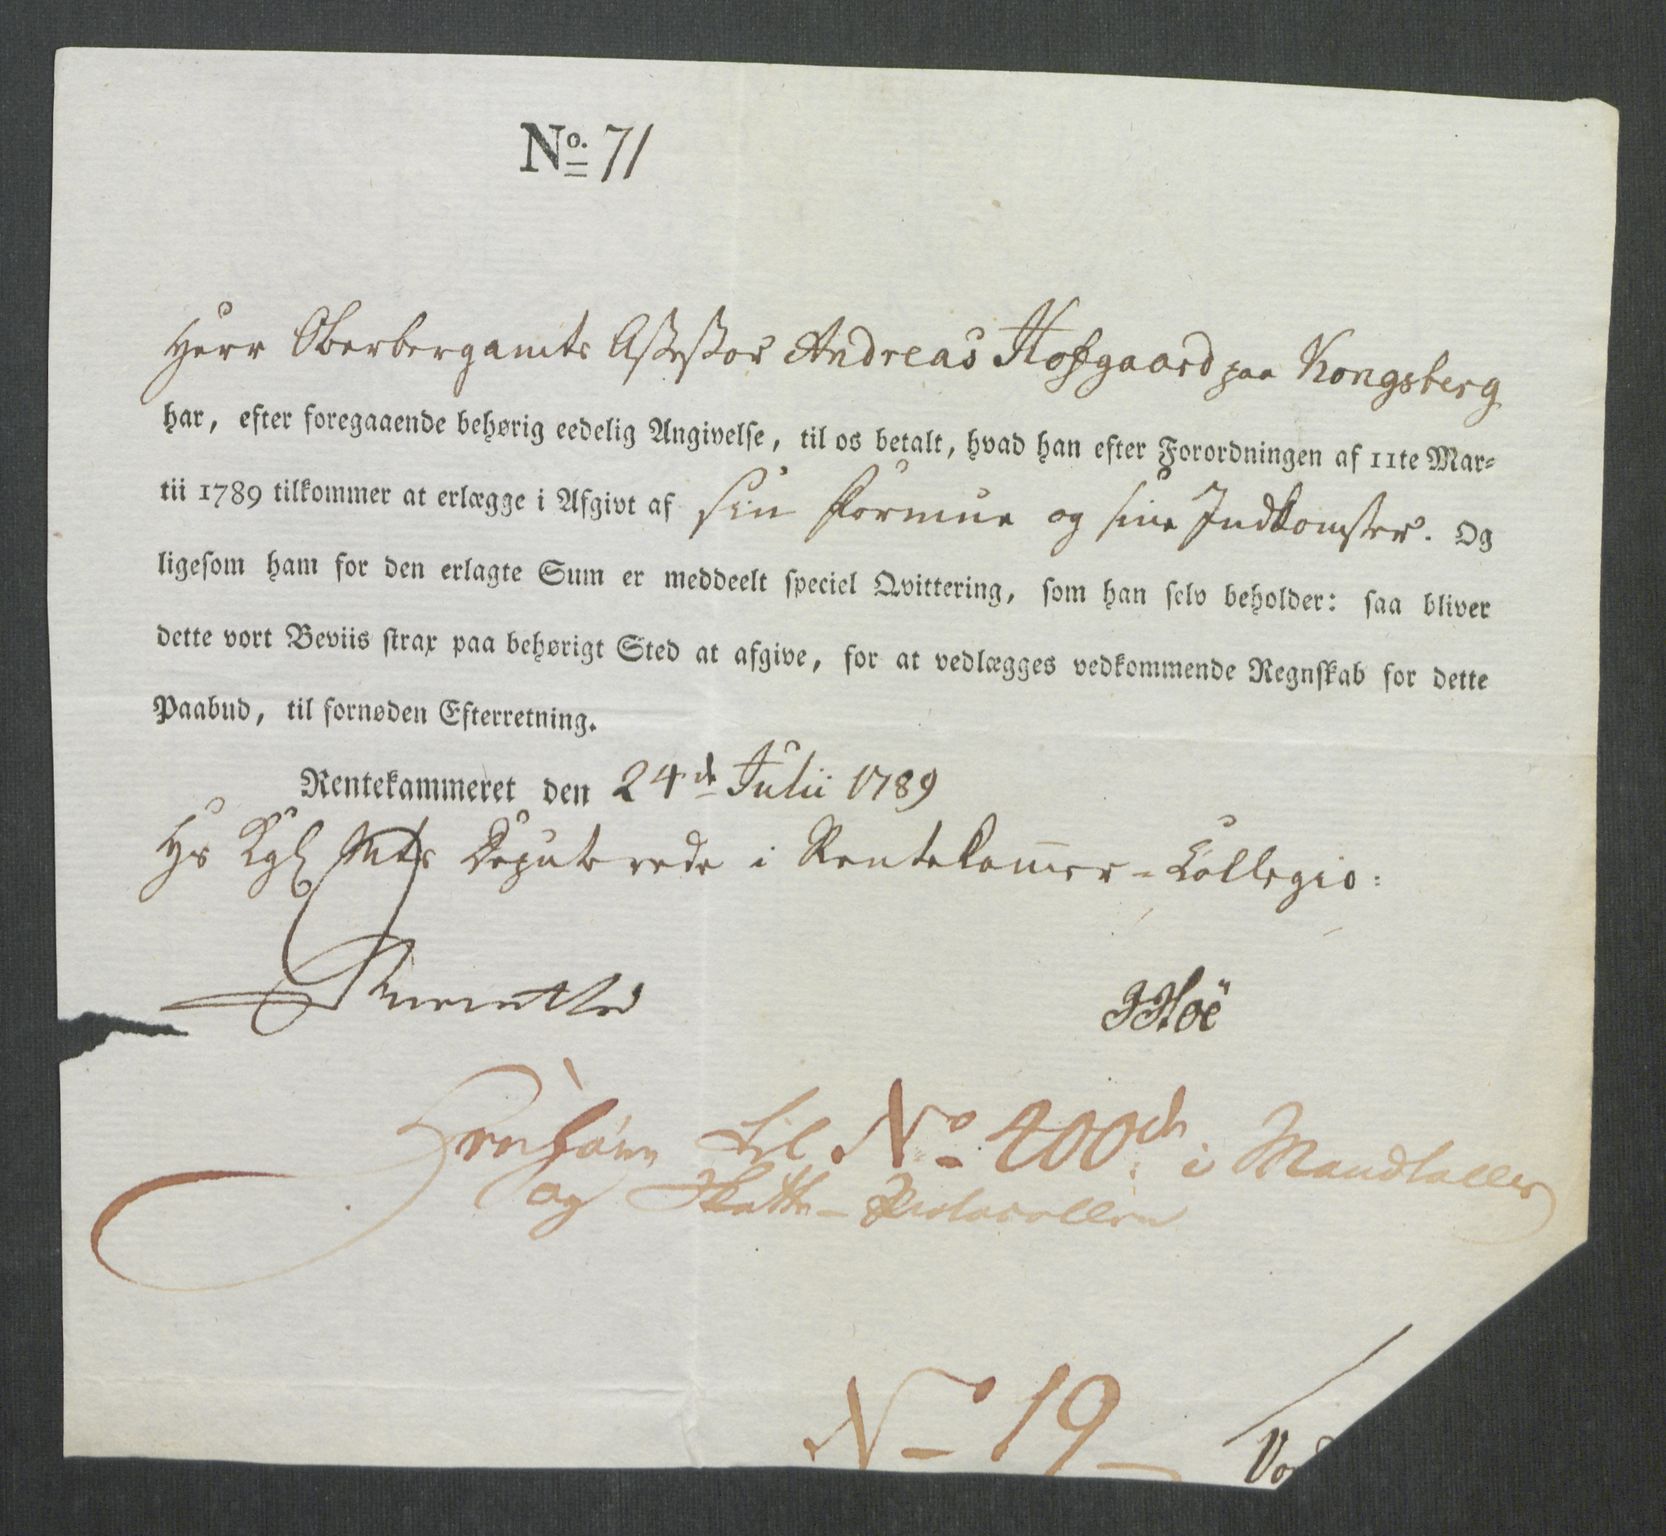 No. 71
Herr Oberbergamts Assessor Andreas Hofgaard paa Kongsberg
har, efter foregaaende behørig eedelig Angivelse, til os betalt, hvad han efter Forordningen af 11te Mar-
tii 1789 tilkommer at erlægge i Afgivt af sin Formue og sine Indkomster. Og
ligesom ham for den erlagte Sum er meddeelt speciel Qvittering, som han selv beholder: saa bliver
dette vort Beviis strax paa behørigt Sted at afgive, for at vedlægges vedkommende Regnskab for dette
Paabud, til fornøden Efterretning.
Rentekammeret den 24de Julii 1789
Hs Kgl Mts Deputerede i Rentekammer-Collegio:
JHoë
til No 400de i Mandtallet
og Skatte-Protocollen
No 19